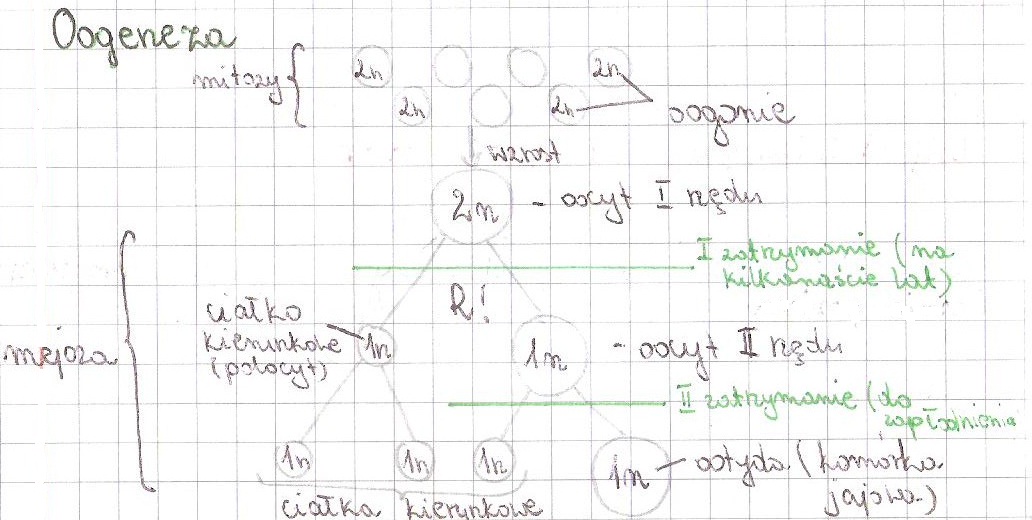 Oogeneza
mitozy
2n
2n
2n
2n
oogonie
wzrost
2n - oocyt I rzędu
I zatrzymanie (na
kilkanaście lat)
R!
ciałko
kierunkowe
(polocyt)
1n
1n
- oocyt II rzędu
mejoza
II zatrzymanie (do
zapłodnienia
1n
1n
1n
1n
ootyda (komórka
jajowa)
ciałka kierunkowe